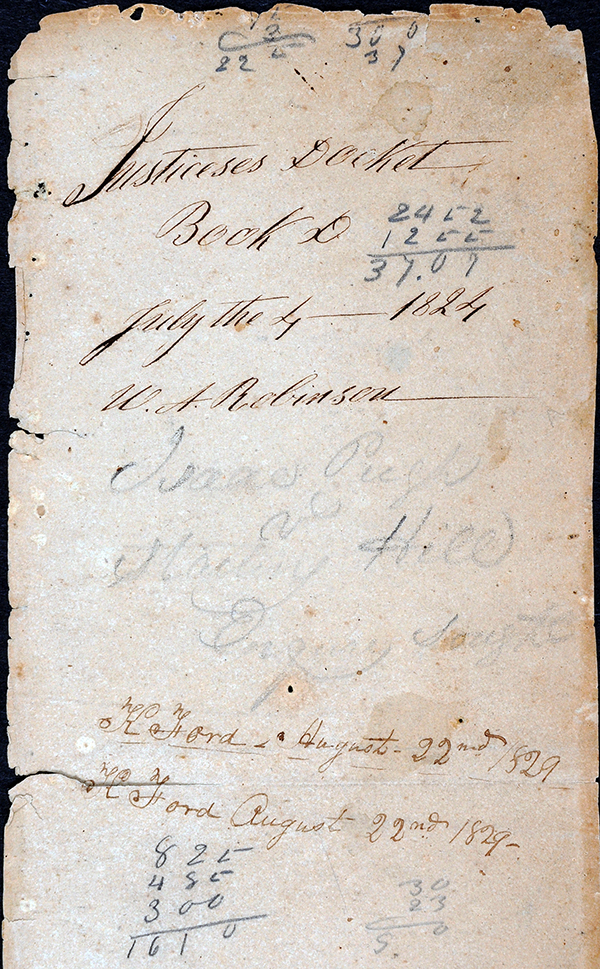 3 300
225 37
Justiceses Docket
Book D
2452
1255
37.07
July the 4 — 1824
W. A. Robinson
Isaac Pugh
vs
Hill
Enquiry
H Ford - August - 22nd 1829
H Ford August 22nd 1829-
825
485
300
1610
30
23
5 0